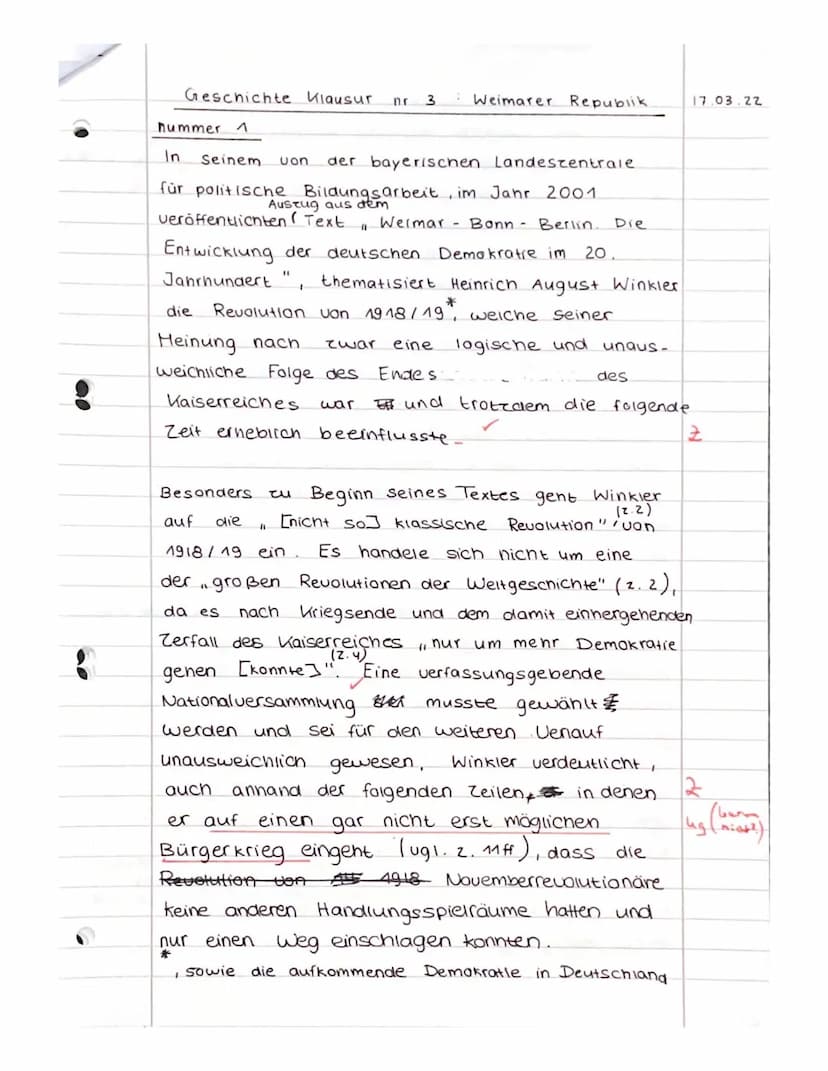 Geschichte Klausur nr 3 : Weimarer Republik 17.03.22
nummer 1
In seinem von der bayerischen Landeszentrale
für politische Bildungsarbeit, im Jahr 2001
Auszug aus dem
veröffentlichten Text „Weimar - Bonn - Berlin. Die
Entwicklung der deutschen Demokratie im 20.
Jahrhundert", thematisiert Heinrich August Winkler
die Revolution von 1918/19*, welche seiner
Meinung nach zwar eine logische und unaus-
weichliche Folge des Endes des
Kaiserreiches war und trotzdem die folgende
Zeit erheblich beeinflusste. Z
Besonders zu Beginn seines Textes geht Winkler
(z.2)
auf die „[nicht so] klassische Revolution" von
1918/19 ein. Es handele sich nicht um eine
der „großen Revolutionen der Weltgeschichte" (z.2),
da es nach Kriegsende und dem damit einhergehenden
Zerfall des Kaiserreiches „nur um mehr Demokratie
(z.4)
gehen [konnte]". Eine verfassungsgebende
Nationalversammlung musste gewählt
werden und sei für den weiteren Verlauf
unausweichlich gewesen. Winkler verdeutlicht,
auch anhand der folgenden Zeilen, in denen
er auf einen gar nicht erst möglichen
Bürgerkrieg eingeht (vgl. z. 11ff), dass die
Revolution von 1918 Novemberrevolutionäre
keine anderen Handlungsspielräume hatten und
nur einen Weg einschlagen konnten.
*, sowie die aufkommende Demokratie in Deutschland